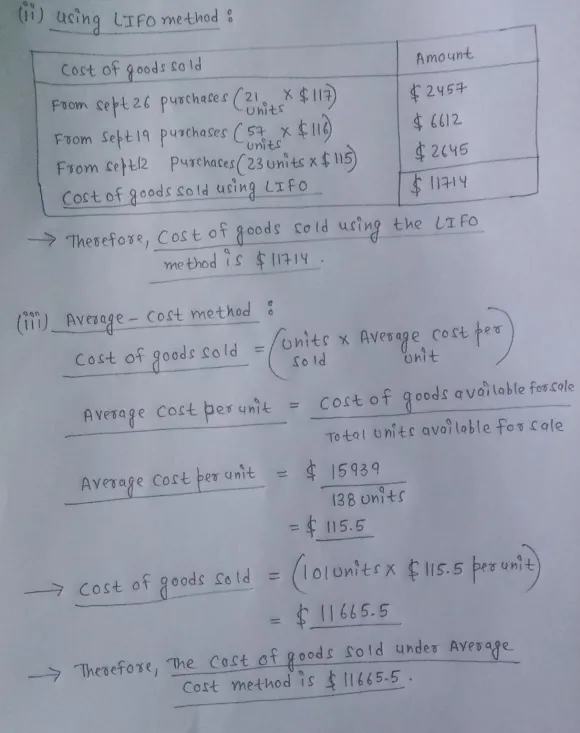 (ii) using LIFO method :
Cost of goods sold Amount
From Sept 26 purchases (21 units × $117) $ 2457
From Sept 19 purchases (57 units × $116) $ 6612
From Sept 12 Purchases (23 units × $115) $ 2645
Cost of goods sold using LIFO $ 11714
→ Therefore, Cost of goods sold using the LIFO
method is $ 11714.
(iii) Average - cost method :
Cost of goods sold = (units sold × Average cost per unit)
Average cost per unit = Cost of goods available for sale
Total units available for sale
Average cost per unit = $ 15939
138 units
= $ 115.5
→ Cost of goods sold = (101 units × $115.5 per unit)
= $ 11665.5
→ Therefore, The cost of goods sold under Average
Cost method is $ 11665.5.